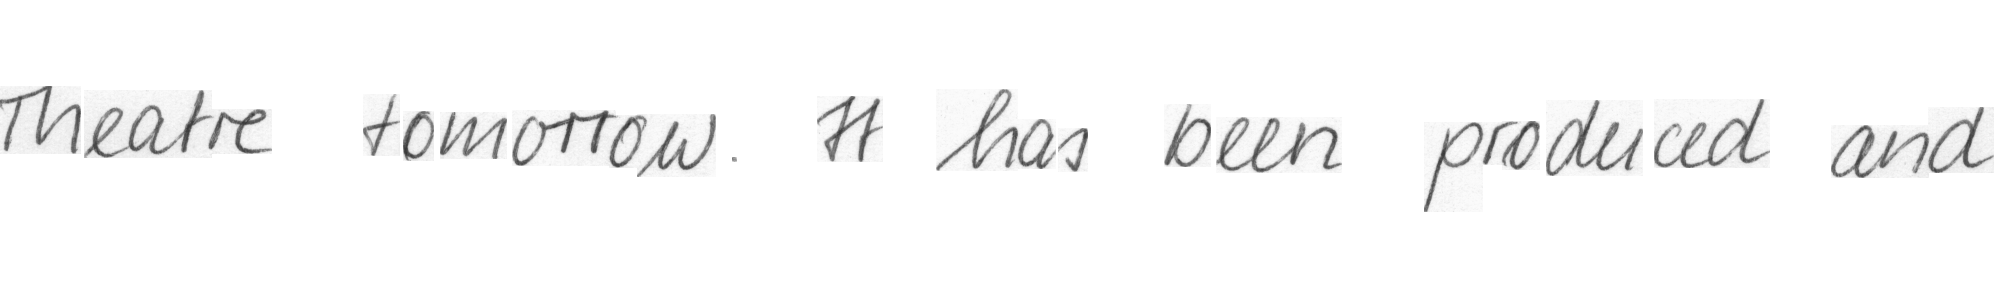 Theatre tomorrow. It has been produced and